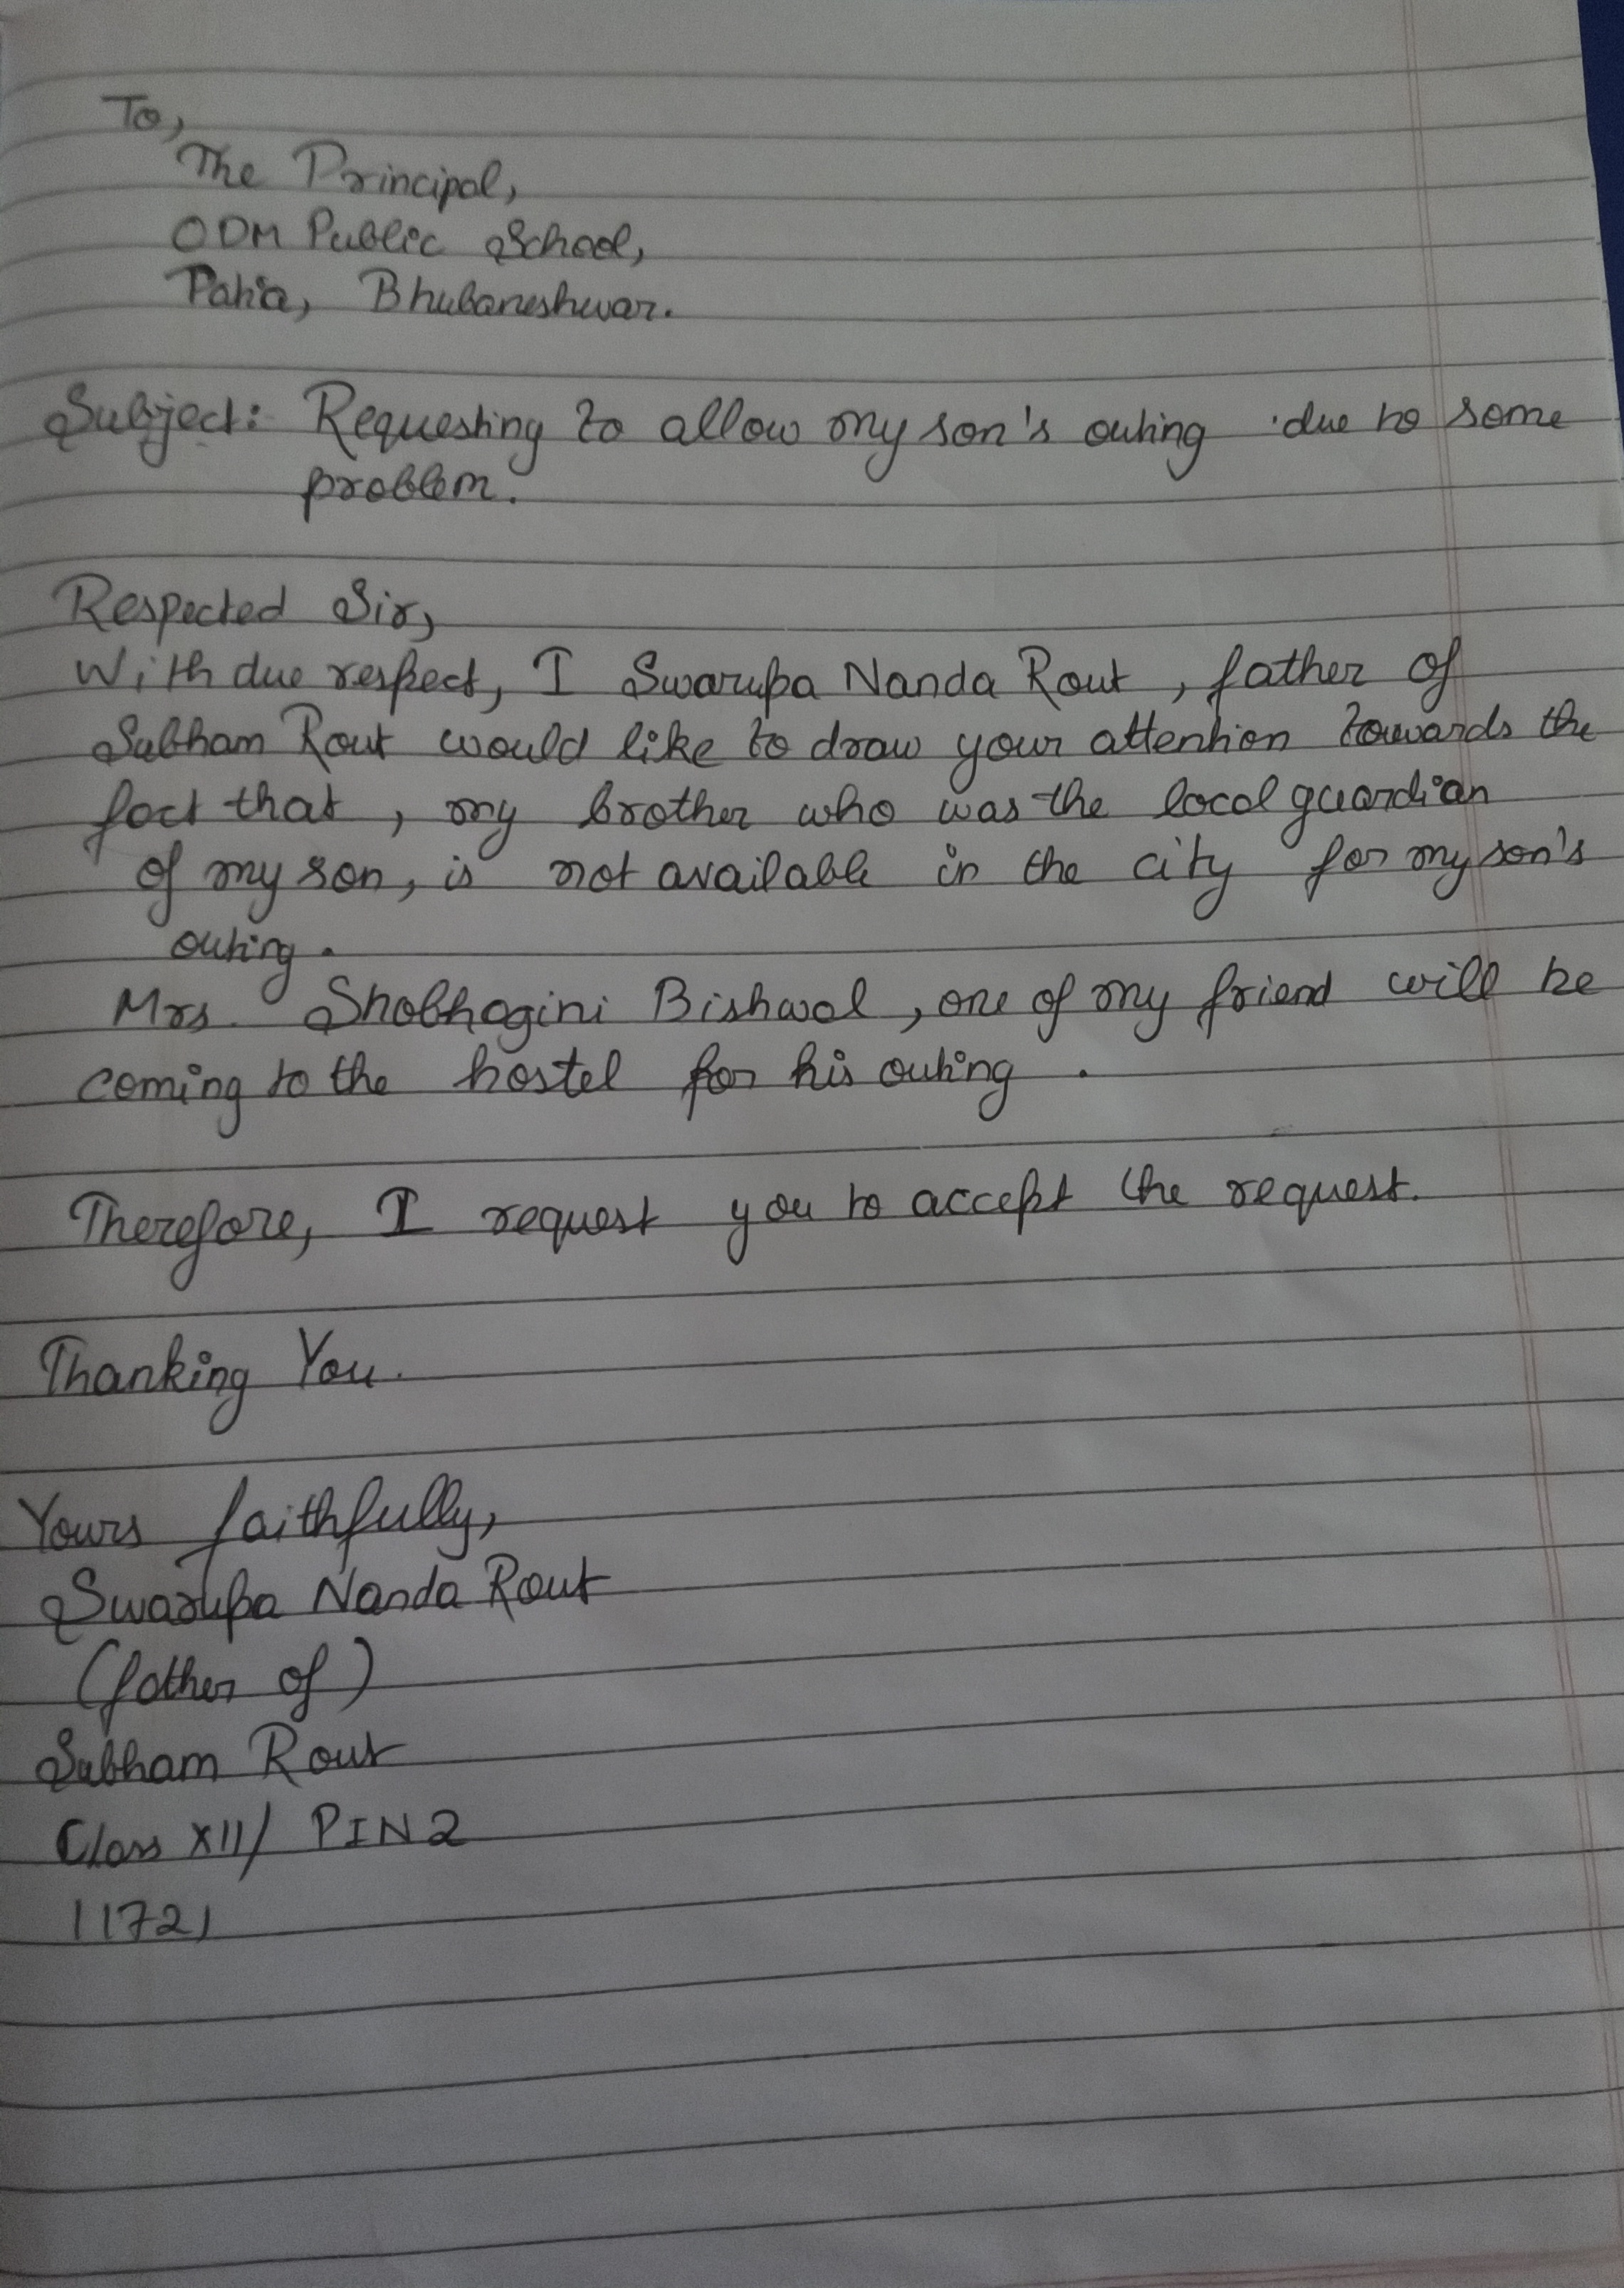 To,
The Principal,
ODM Public School,
Patia, Bhubaneshwar.
Subject: Requesting to allow my son's outing due to some
problem.
Respected Sir,
With due respect, I Swarupa Nanda Rout, father of
Subham Rout would like to draw your attention towards the
fact that, my brother who was the local guardian
of my son, is not available in the city for my son's
outing.
Mrs. Shobhagini Bishwal, one of my friend will be
coming to the hostel for his outing.
Therefore, I request you to accept the request.
Thanking You.
Yours faithfully,
Swarupa Nanda Rout
(father of)
Subham Rout
Class XII/ PIN2
11721